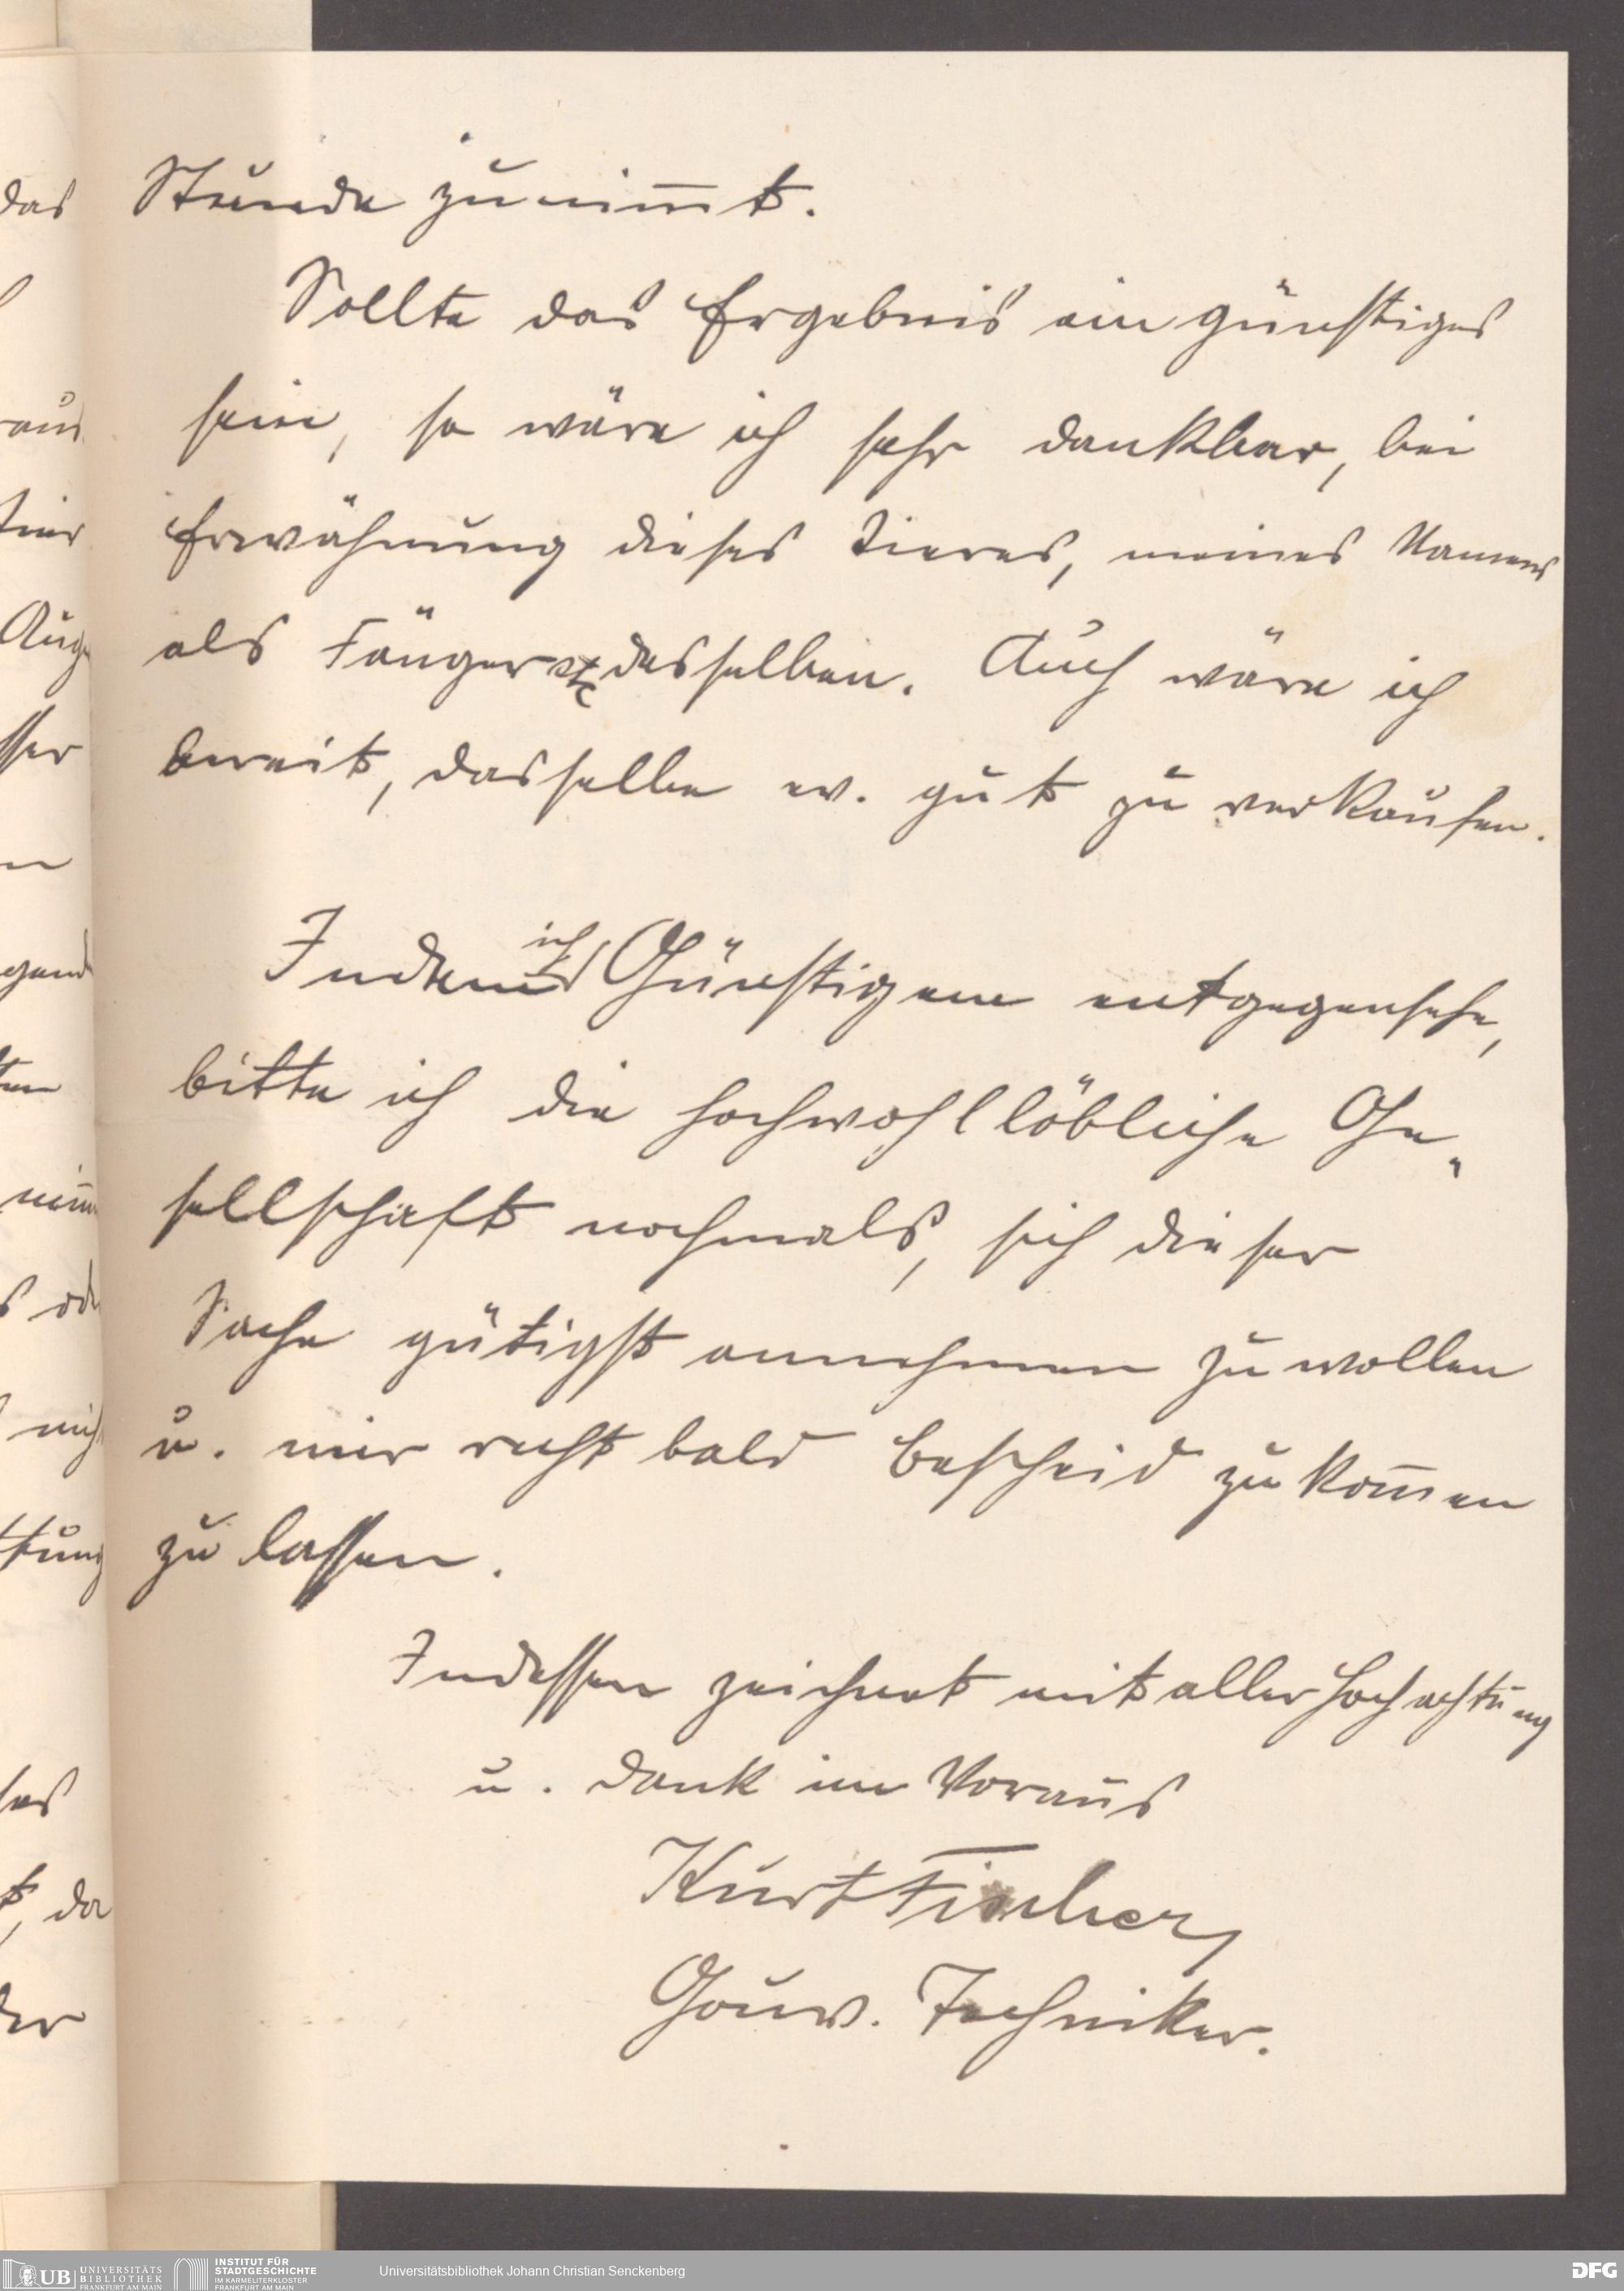 Stunde zunim̄t.
Sollte das Ergebnis ein günstiges
sein, so wäre ich sehr dankbar, bei
Erwähnung dieses Tieres, meines Namens
als Fänger desselben. Auch wäre ich
bereit, dasselbe ev. gut zu verkaufen.
Indem ich Günstigem entgegensehe,
bitte ich die hochwohllöbliche Ge-
sellschaft nochmals, sich dieser
Sache gütigst annehmen zu wollen
u. mir recht bald Bescheid zukom̄en
zu lassen.
Indessen zeichnet mit aller Hochachtung
u. Dank im Voraus
Kurt Fischer,
Gouv. Techniker.
das
aus
Tier
Auge
sser
gend
nim̄
s ode
nich
ttung
t, da
der
UB UNIVERSITÄTS
BIBLIOTHEK
FRANKFURT AM MAIN
INSTITUT FÜR
STADTGESCHICHTE
IM KARMELITERKLOSTER
FRANKFURT AM MAIN
Universitätsbibliothek Johann Christian Senckenberg
DFG